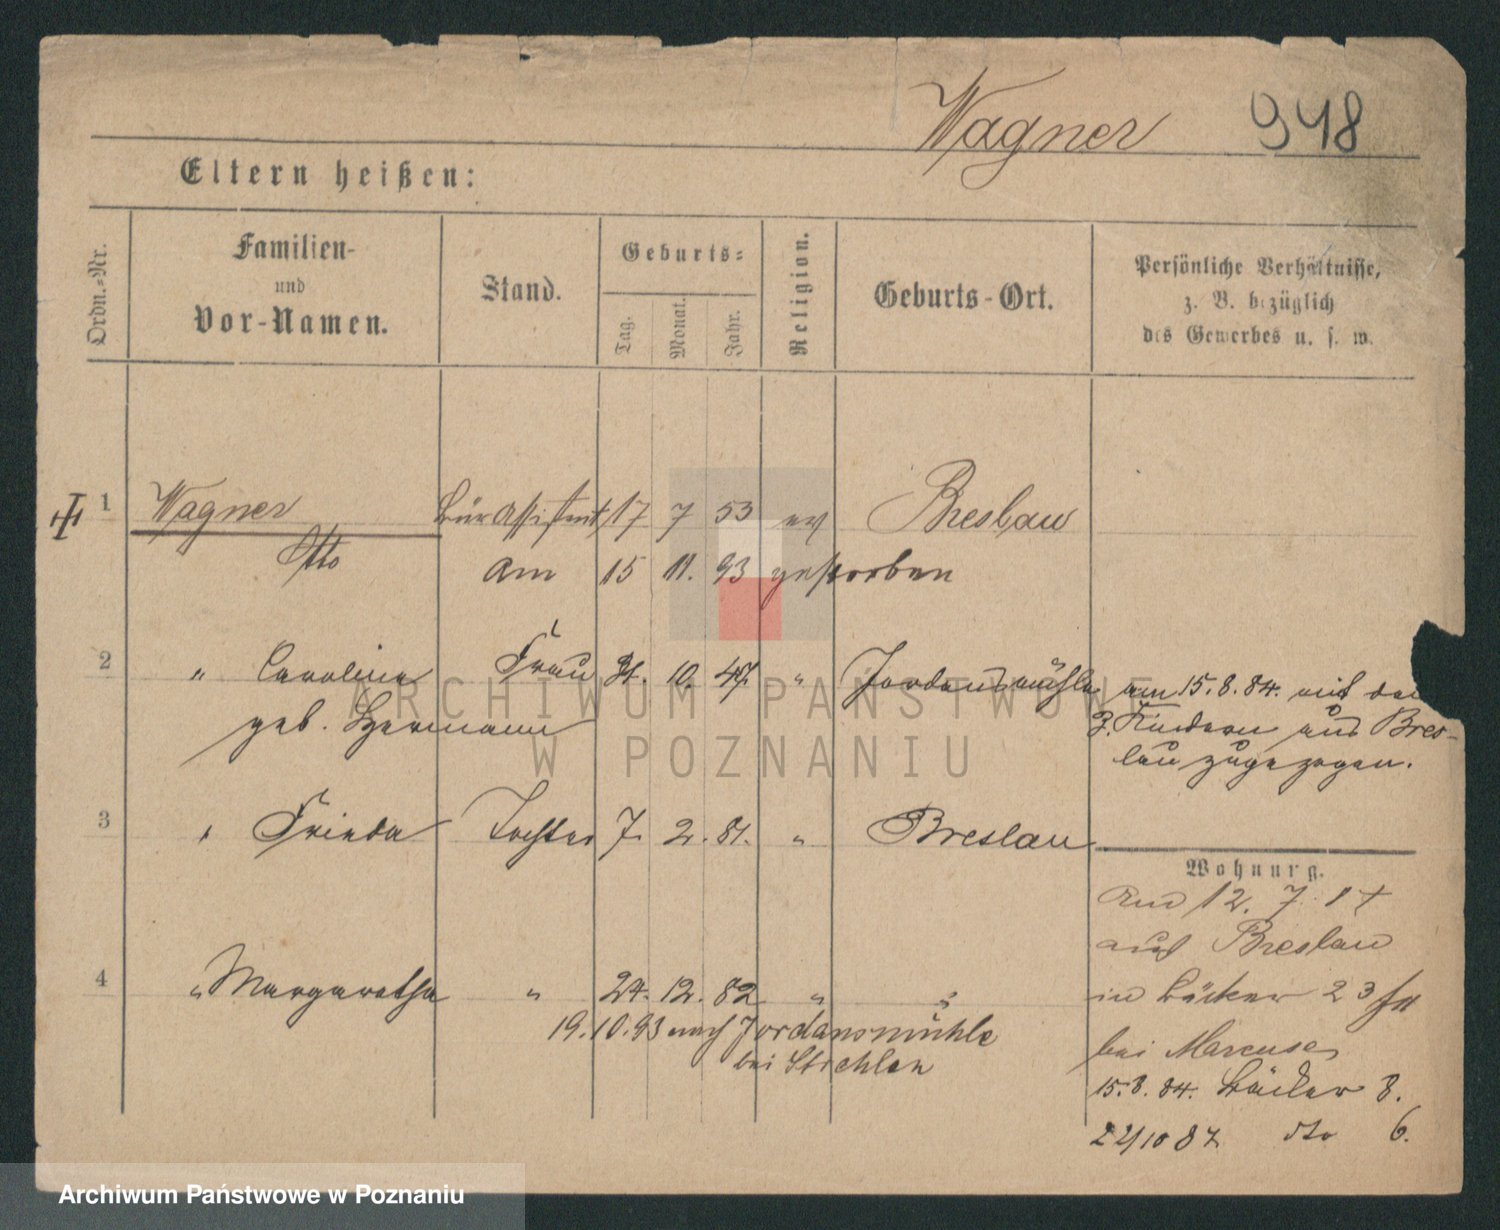 Wagner 948
Eltern heißen:
Ordn.=Nr.
Familien-
und
Vor-Namen.
Stand.
Geburts=
Tag.
Monat.
Jahr.
Religion.
Geburts-Ort.
Persönliche Verhältnisse,
z. B. bezüglich
des Gewerbes u. s. w.
1 Wagner Bür Assistent 17 7 53 ev Breslau
Otto am 15 11. 93 gestorben
2 " Carolina Frau 31. 10. 47. " Jordansmühle am 15. 8. 84. mit den
geb. Hermann 2. Kindern aus Bres-
lau zugezogen.
3 " Frieda Tochter 7. 2. 81. " Breslau
Wohnung.
12. 7. 84
aus Breslau
4 " Margaretha " 24. 12. 82 " "
in Bäcker 23
19. 10. 93 nach Jordansmühle
bei Strehlen
bei Marcuse
15. 8. 84. Bäcker 8.
22/10 87 dto 6.
ARCHIWUM PAŃSTWOWE
W POZNANIU
Archiwum Państwowe w Poznaniu